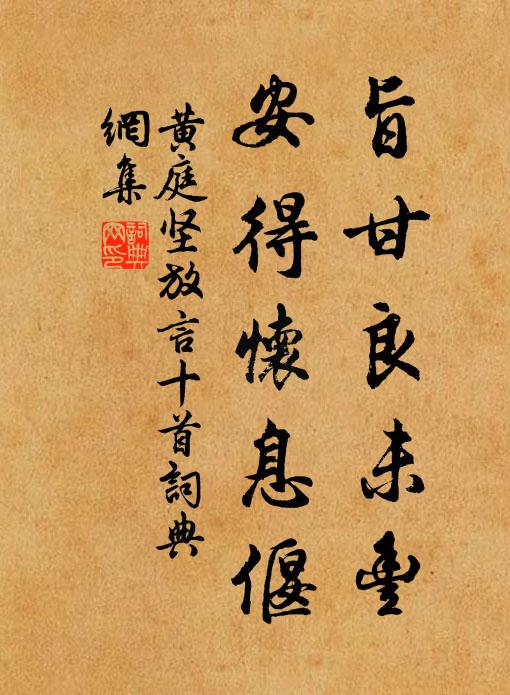 旨甘良未豐
安得懷息偃
黄庭坚放言十首詞典
網集
詞典
网印